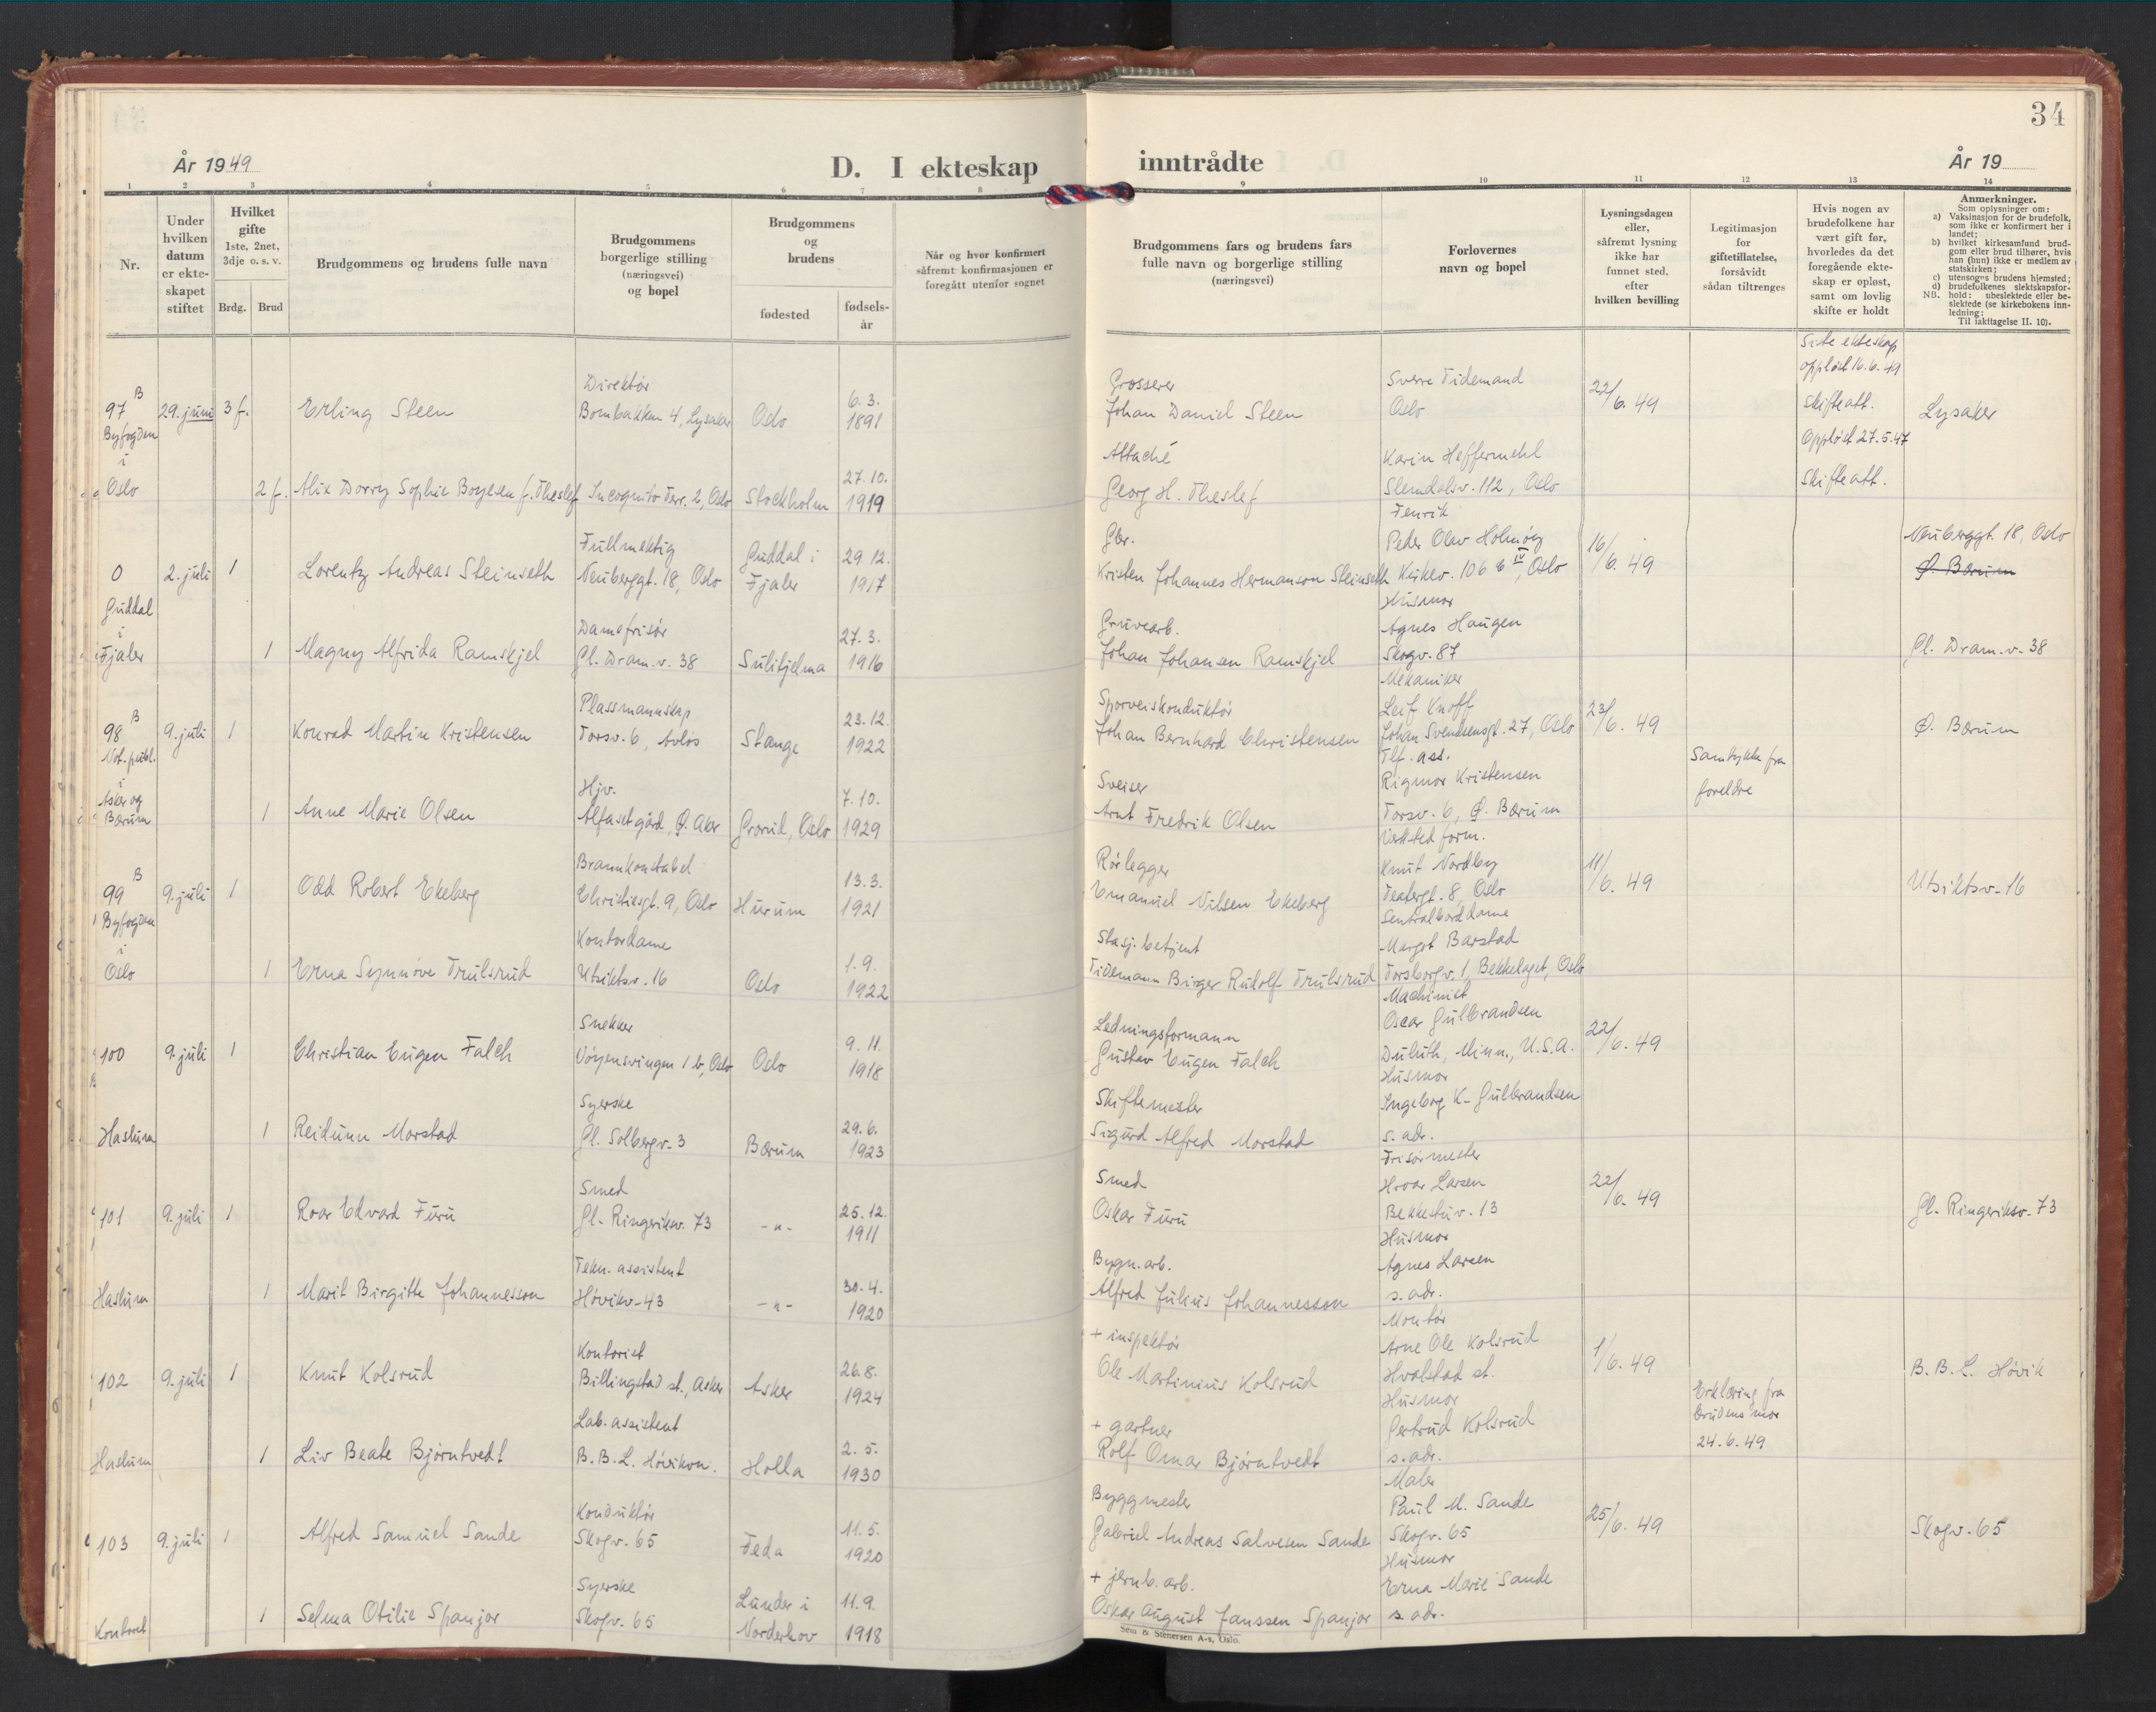 34
År 1949
D. I ekteskap inntrådte
År 19
1 2 3 4 5 6 7 8 9 10 11 12 13 14
Nr.
Under hvilken datum er ekteskapet stiftet
Hvilket gifte
1ste, 2net, 3dje o. s. v.
Brdg. Brud
Brudgommens og brudens fulle navn
Brudgommens borgerlige stilling (næringsvei) og bopel
Brudgommens og brudens
fødested
fødselsår
Når og hvor konfirmert såfremt konfirmasjonen er foregått utenfor sognet
Brudgommens fars og brudens fars fulle navn og borgerlige stilling (næringsvei)
Forlovernes navn og bopel
Lysningsdagen eller, såfremt lysning ikke har funnet sted, efter hvilken bevilling
Legitimasjon for giftetillatelse, forsåvidt sådan tiltrenges
Hvis nogen av brudefolkene har vært gift før, hvorledes da det foregående ekteskap er opløst, samt om lovlig skifte er holdt
Anmerkninger.
Som oplysninger om:
a) Vaksinasjon for de brudefolk, som ikke er konfirmert her i landet;
b) hvilket kirkesamfund brudgom eller brud tilhører, hvis han (hun) ikke er medlem av statskirken;
c) utensogns brudens hjemsted;
d) brudefolkenes slektskapsforhold: ubeslektede eller beslektede (se kirkebokens innledning:
NB. Til iakttagelse II. 10).
97 B Byfogden i Oslo
29. juni
3 f.
Erling Steen
Direktør
Bombakken 4, Lysaker
Oslo
6.3. 1891
Grosserer
Johan Daniel Steen
Sverre Tidemand
Oslo
22/6. 49
Siste ekteskap
oppløst 16.6.49
Skifteatt.
Lysaker
2 f.
Alix Dorry Sophie Boyesen f. Theslef
Incognito Terr. 2, Oslo
Stockholm
27.10. 1919
Attaché
Georg H. Theslef
Karin Heffermehl
Slemdalsv. 112, Oslo
Oppløst 27.5.47
Skifteatt.
0 Guddal i Fjaler
2. juli
1
Lorentz Andreas Steinseth
Fullmektig
Neuberggt. 18, Oslo
Guddal i Fjaler
29 12. 1917
Gbr.
Kristen Johannes Hermanson Steinseth
Fenrik
Peder Olav Holmøy
Kirkev. 106 b IV, Oslo
16/6. 49
Neuberggt. 18, Oslo
Ø. Bærum
1
Magny Alfrida Ramskjel
Damefrisør
Gl. Dram.v. 38
Sulitjelma
27.3. 1916
Gruvearb.
Johan Johansen Ramskjel
Husmor
Agnes Haugen
Skogv. 87
Gl. Dram.v. 38
98 B Not. publ. i Asker og Bærum
9. juli
1
Konrad Martin Kristensen
Plassmannskap
Torsv. 6, Avløs
Stange
23.12. 1922
Sporveiskonduktør
Johan Bernhard Christensen
Mekaniker
Leif Knoff
Johan Svendsensgt. 27, Oslo
23/6. 49
Ø. Bærum
1
Anne Marie Olsen
Hjv.
Alfaset gård, Ø. Aker
Grorud, Oslo
7.10. 1929
Sveiser
Arnt Fredrik Olsen
Tlf. ass.
Rigmor Kristensen
Torsv. 6, Ø. Bærum
Samtykke fra foreldre
99 B Byfogden i Oslo
9. juli
1
Odd Robert Ekeberg
Brannkonstabel
Christiesgt. 9, Oslo
Hurum
13.3. 1921
Rørlegger
Emanuel Nilsen Ekeberg
Verksted form.
Knut Nordby
Teatergt. 8, Oslo
11/6. 49
Utsiktsv. 16
1
Erna Synnøve Trulsrud
Kontordame
Utsiktsv. 16
Oslo
1.9. 1922
Stasj. betjent
Tidemann Birger Rudolf Trulsrud
Sentralborddame
Margot Barstad
Torsborgv. 1, Bekkelaget, Oslo
100 Haslum
9. juli
1
Christian Eugen Falch
Snekker
Vøyensvingen 1 b, Oslo
Oslo
9.11. 1918
Ledningsformann
Gustav Eugen Falch
Machinist
Oscar Gulbrandsen
Duluth, Minn., U.S.A.
22/6. 49
1
Reidunn Morstad
Syerske
Gl. Solbergv. 3
Bærum
29.6. 1923
Skiftemester
Sigurd Alfred Morstad
Husmor
Ingeborg K. Gulbrandsen
s. adr.
101 Haslum
9. juli
1
Roar Edvard Furu
Smed
Gl. Ringeriksv. 73
-"-
25.12. 1911
Smed
Oskar Furu
Frisørmester
Hroar Larsen
Bekkestuv. 13
22/6. 49
Gl. Ringeriksv. 73
1
Marit Birgitte Johannesson
Tekn. assistent
Høvikv. 43
-"-
30.4. 1920
Bygn.arb.
Alfred Julius Johannesson
Husmor
Agnes Larsen
s. adr.
102 Haslum
9. juli
1
Knut Kolsrud
Kontorist
Billingstad st., Asker
Asker
26.8. 1924
+ inspektør
Ole Martinius Kolsrud
Montør
Arne Ole Kolsrud
Hvalstad st.
1/6. 49
B.B.L. Høvik
1
Liv Beate Bjørntvedt
Lab. assistent
B.B.L. Høvikvn.
Holla
2.5. 1930
+ gartner
Rolf Omar Bjørntvedt
Husmor
Gertrud Kolsrud
s. adr.
Erklæring fra brudens mor 24.6.49
103 Kontoret
9. juli
1
Alfred Samuel Sande
Konduktør
Skogv. 65
Feda
11.5. 1920
Byggmester
Gabriel Andreas Salvesen Sande
Maler
Paul M. Sande
Skogv. 65
25/6. 49
Skogv. 65
1
Selma Otilie Spanjor
Syerske
Skogv. 65
Lunder i Norderhov
11.9. 1918
+ jernb. arb.
Oskar August Janssen Spanjor
Husmor
Erna Marie Sande
s. adr.
Sem & Stenersen A-s, Oslo.